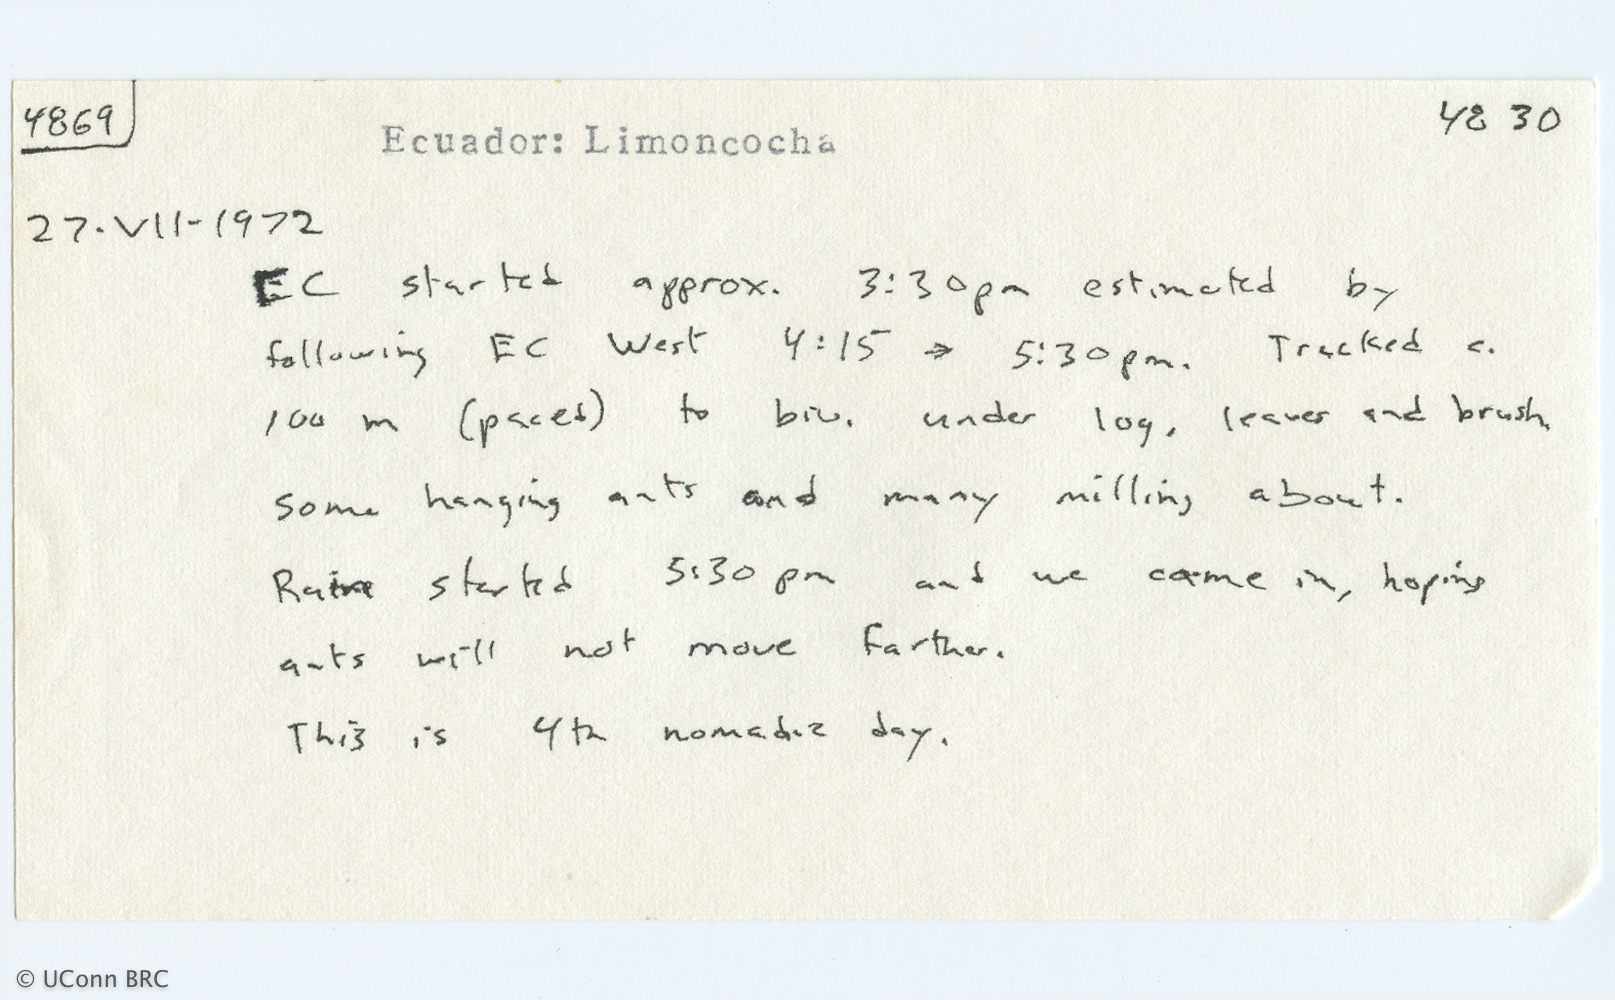 4869
Ecuador: Limoncocha
4830
27.VII-1972
EC started approx. 3:30pm estimated by
following EC West 4:15 → 5:30pm. Tracked c.
100 m (paced) to biv. under log, leaves and brush.
Some hanging ants and many milling about.
Rain started 5:30 pm and we came in, hoping
ants will not move farther.
This is 4th nomadic day.
© UConn BRC